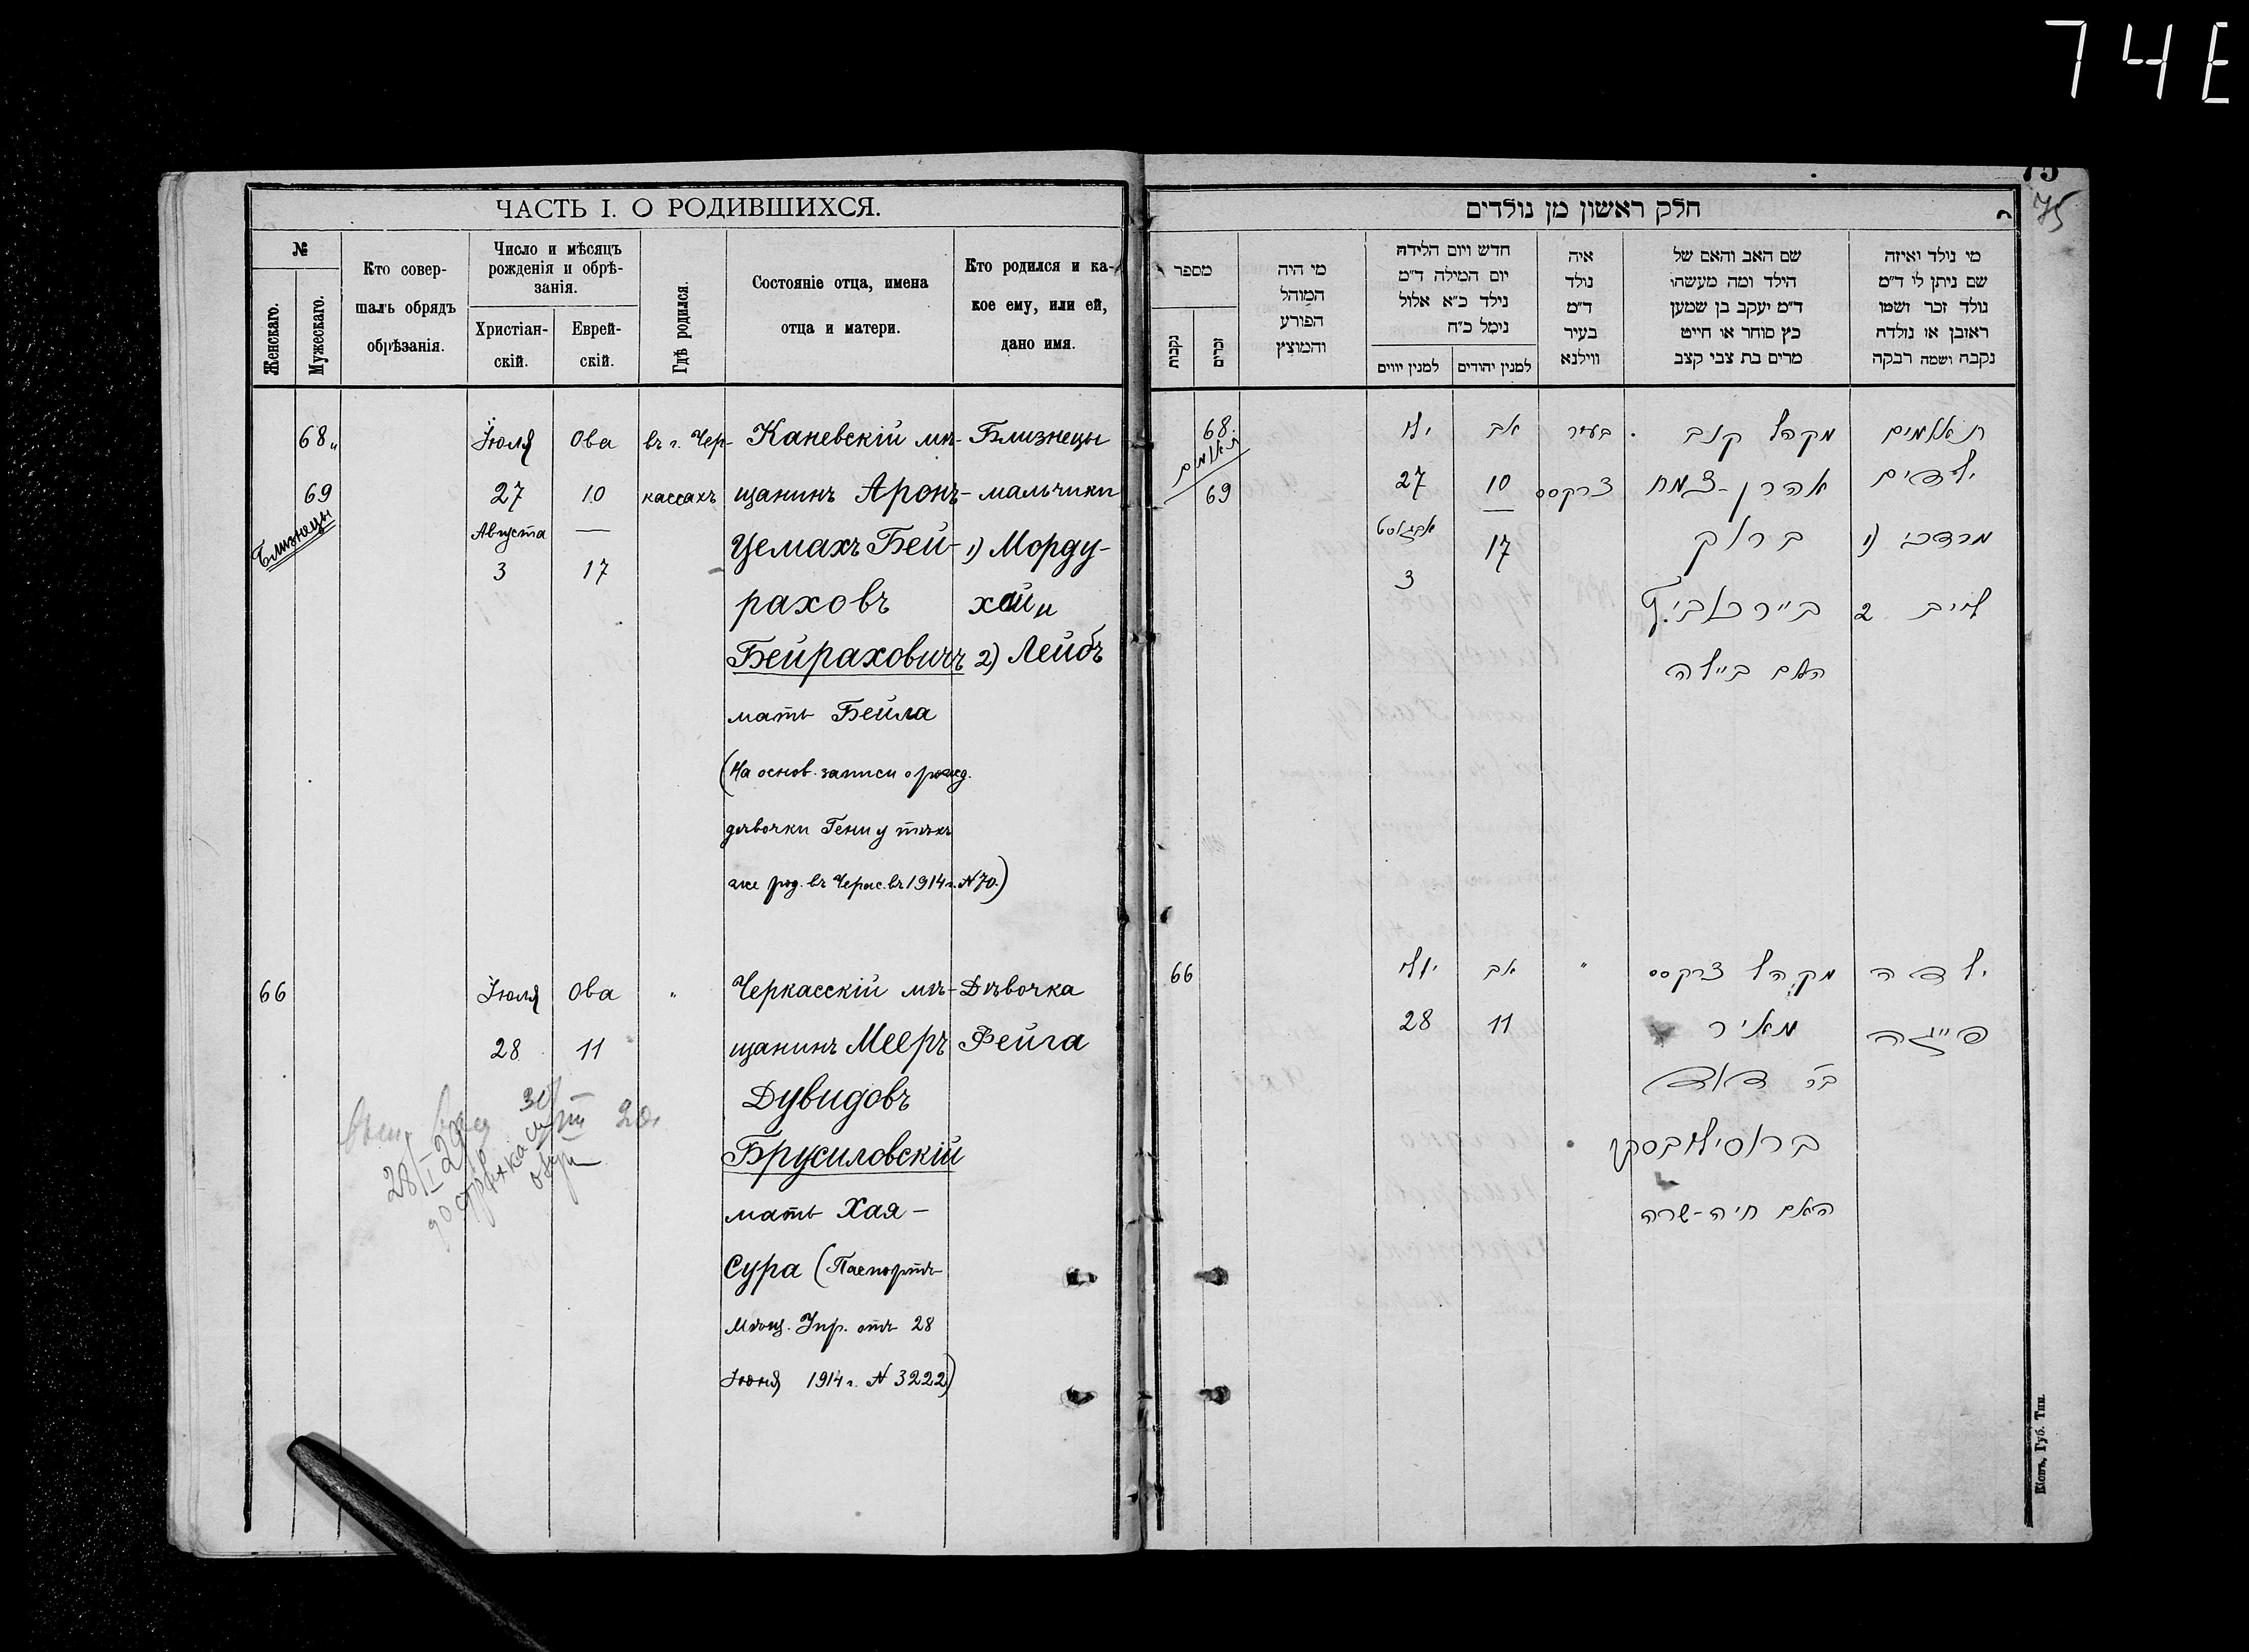 74E
75
75
ЧАСТЬ I. О РОДИВШИХСЯ.
№
Женскаго.
Мужескаго.
Кто совер-
шалъ обрядъ
обрѣзанія.
Число и мѣсяцъ
рожденія и обрѣ-
занія.
Христіан-
скій.
Еврей-
скій.
Гдѣ родился.
Состояніе отца, имена
отца и матери.
Кто родился и ка-
кое ему, или ей,
дано имя.
68 Іюля Ова въ г. Чер- Каневскій мѣ- Близнецы
69 27 10 кассахъ щанинъ Аронъ- мальчики
Близнецы
Августа — Цемахъ Бей- 1) Морду-
3 17
раховъ хай и
Бейраховичъ 2) Лейбъ
мать Бейла
(На основ. записи о рожд.
дѣвочки Гени у тѣхъ
же род. въ Черкас. въ 1914 г. № 70.)
66 Іюля Ова " Черкасскій мѣ- Дѣвочка
28 11 щанинъ Мееръ Фейга
Дувидовъ
Брусиловскій
мать Хая-
Сура (Паспортъ
Мѣщ. Упр. отъ 28
Іюня 1914 г. № 3222)
28/I 29
חלק ראשון מן נולדים
מי נולד ואיזה
שם ניתן לו ד"מ
נולד זכר ושמו
ראובן או נולדת
נקבה ושמה רבקה
שם האב והאם של
הילד ומה מעשהו
ד"מ יעקב בן שמעון
כץ סוחר או חייט
מרים בת צבי קצב
איה
נולד
ד"מ
בעיר
ווילנא
חדש ויום הלידה
יום המילה ד"מ
נילד כ"א אלול
נימל כ"ח
למנין יהודים
למנין יווים
מי היה
המוהל
הפורע
והמוצץ
מספר
זכרים
נקבות
תאומים מקהל קנב בעיר אב יולי 68
תאומים
ילדים אהרן-צמח צרקסס 10 27 69
מרדכי (1 ברוך 17 אבגוסט
3
ליב 2 ביירכאביץ
האם ביילה
ילדה מקהל צרקסס " אב יולי 66
פייגה מאיר 11 28
בר דוד
ברוסילובסקי
האם חיה-שרה
Кіевъ, Губ. Тип.